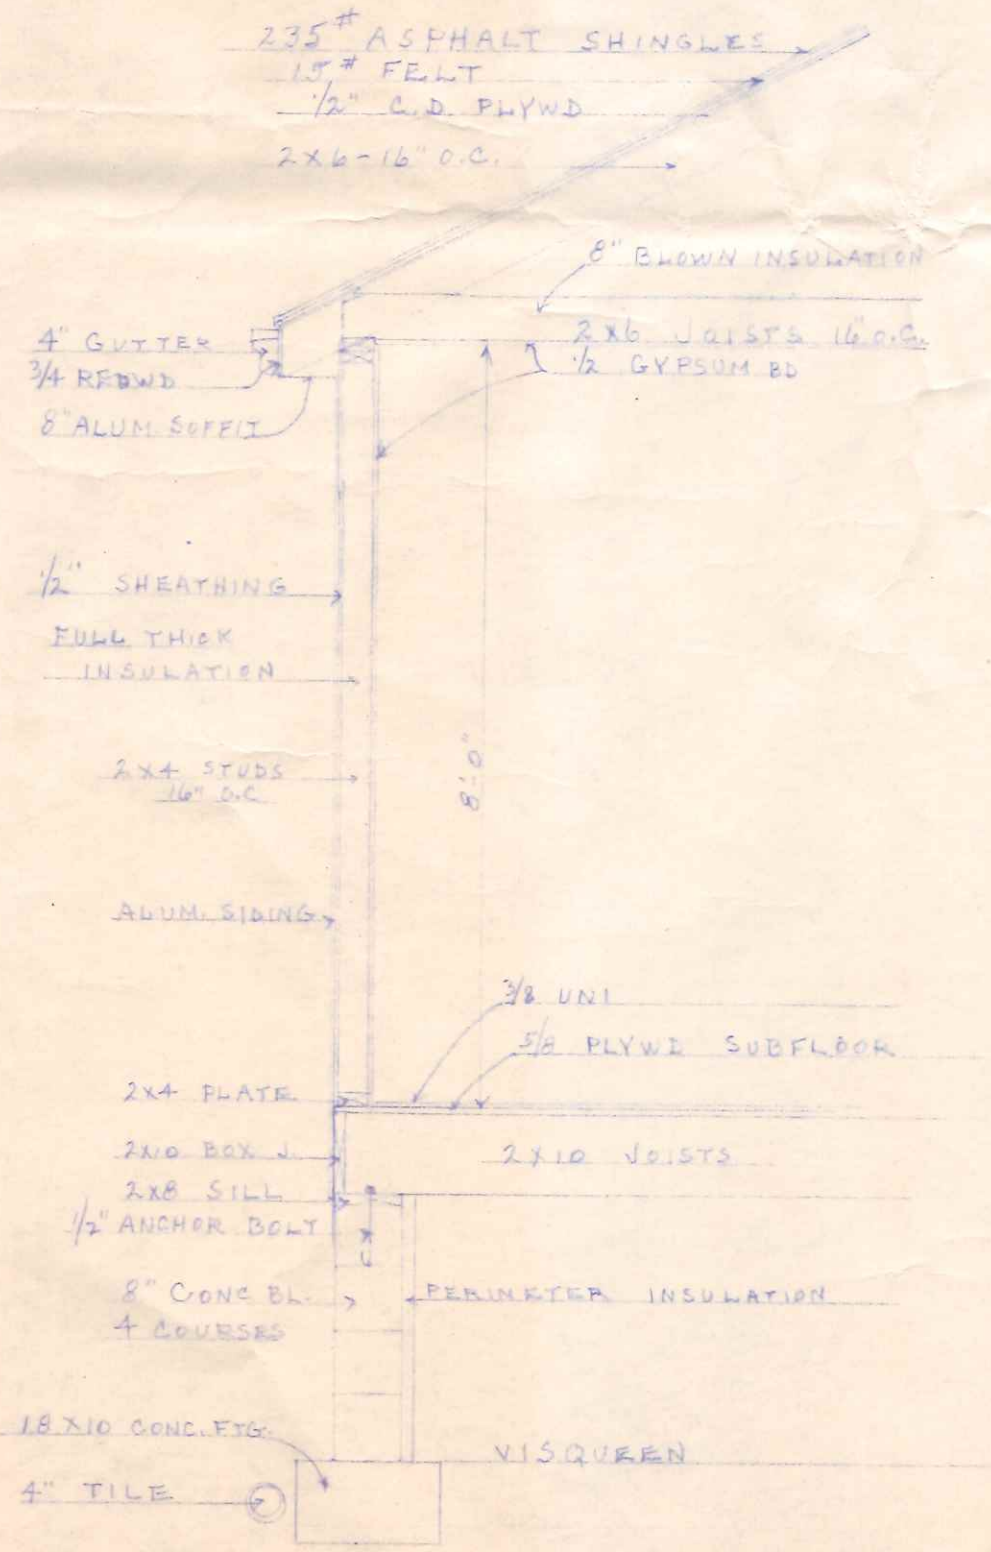 235# ASPHALT SHINGLES
15# FELT
1/2" C.D. PLYWD
2X6-16" O.C.
8" BLOWN INSULATION
4" GUTTER
2X6 JOISTS 16" O.C.
3/4 REDWD
1/2 GYPSUM BD
8" ALUM SOFFIT
1/2" SHEATHING
FULL THICK
INSULATION
2X4 STUDS
16" O.C
8'-0"
ALUM. SIDING
3/8 UNI
5/8 PLYWD SUBFLOOR
2X4 PLATE
2X10 BOX J.
2X10 JOISTS
2X8 SILL
1/2" ANCHOR BOLT
8" CONC BL.
PERIMETER INSULATION
4 COURSES
18 X10 CONC. FTG.
VISQUEEN
4" TILE